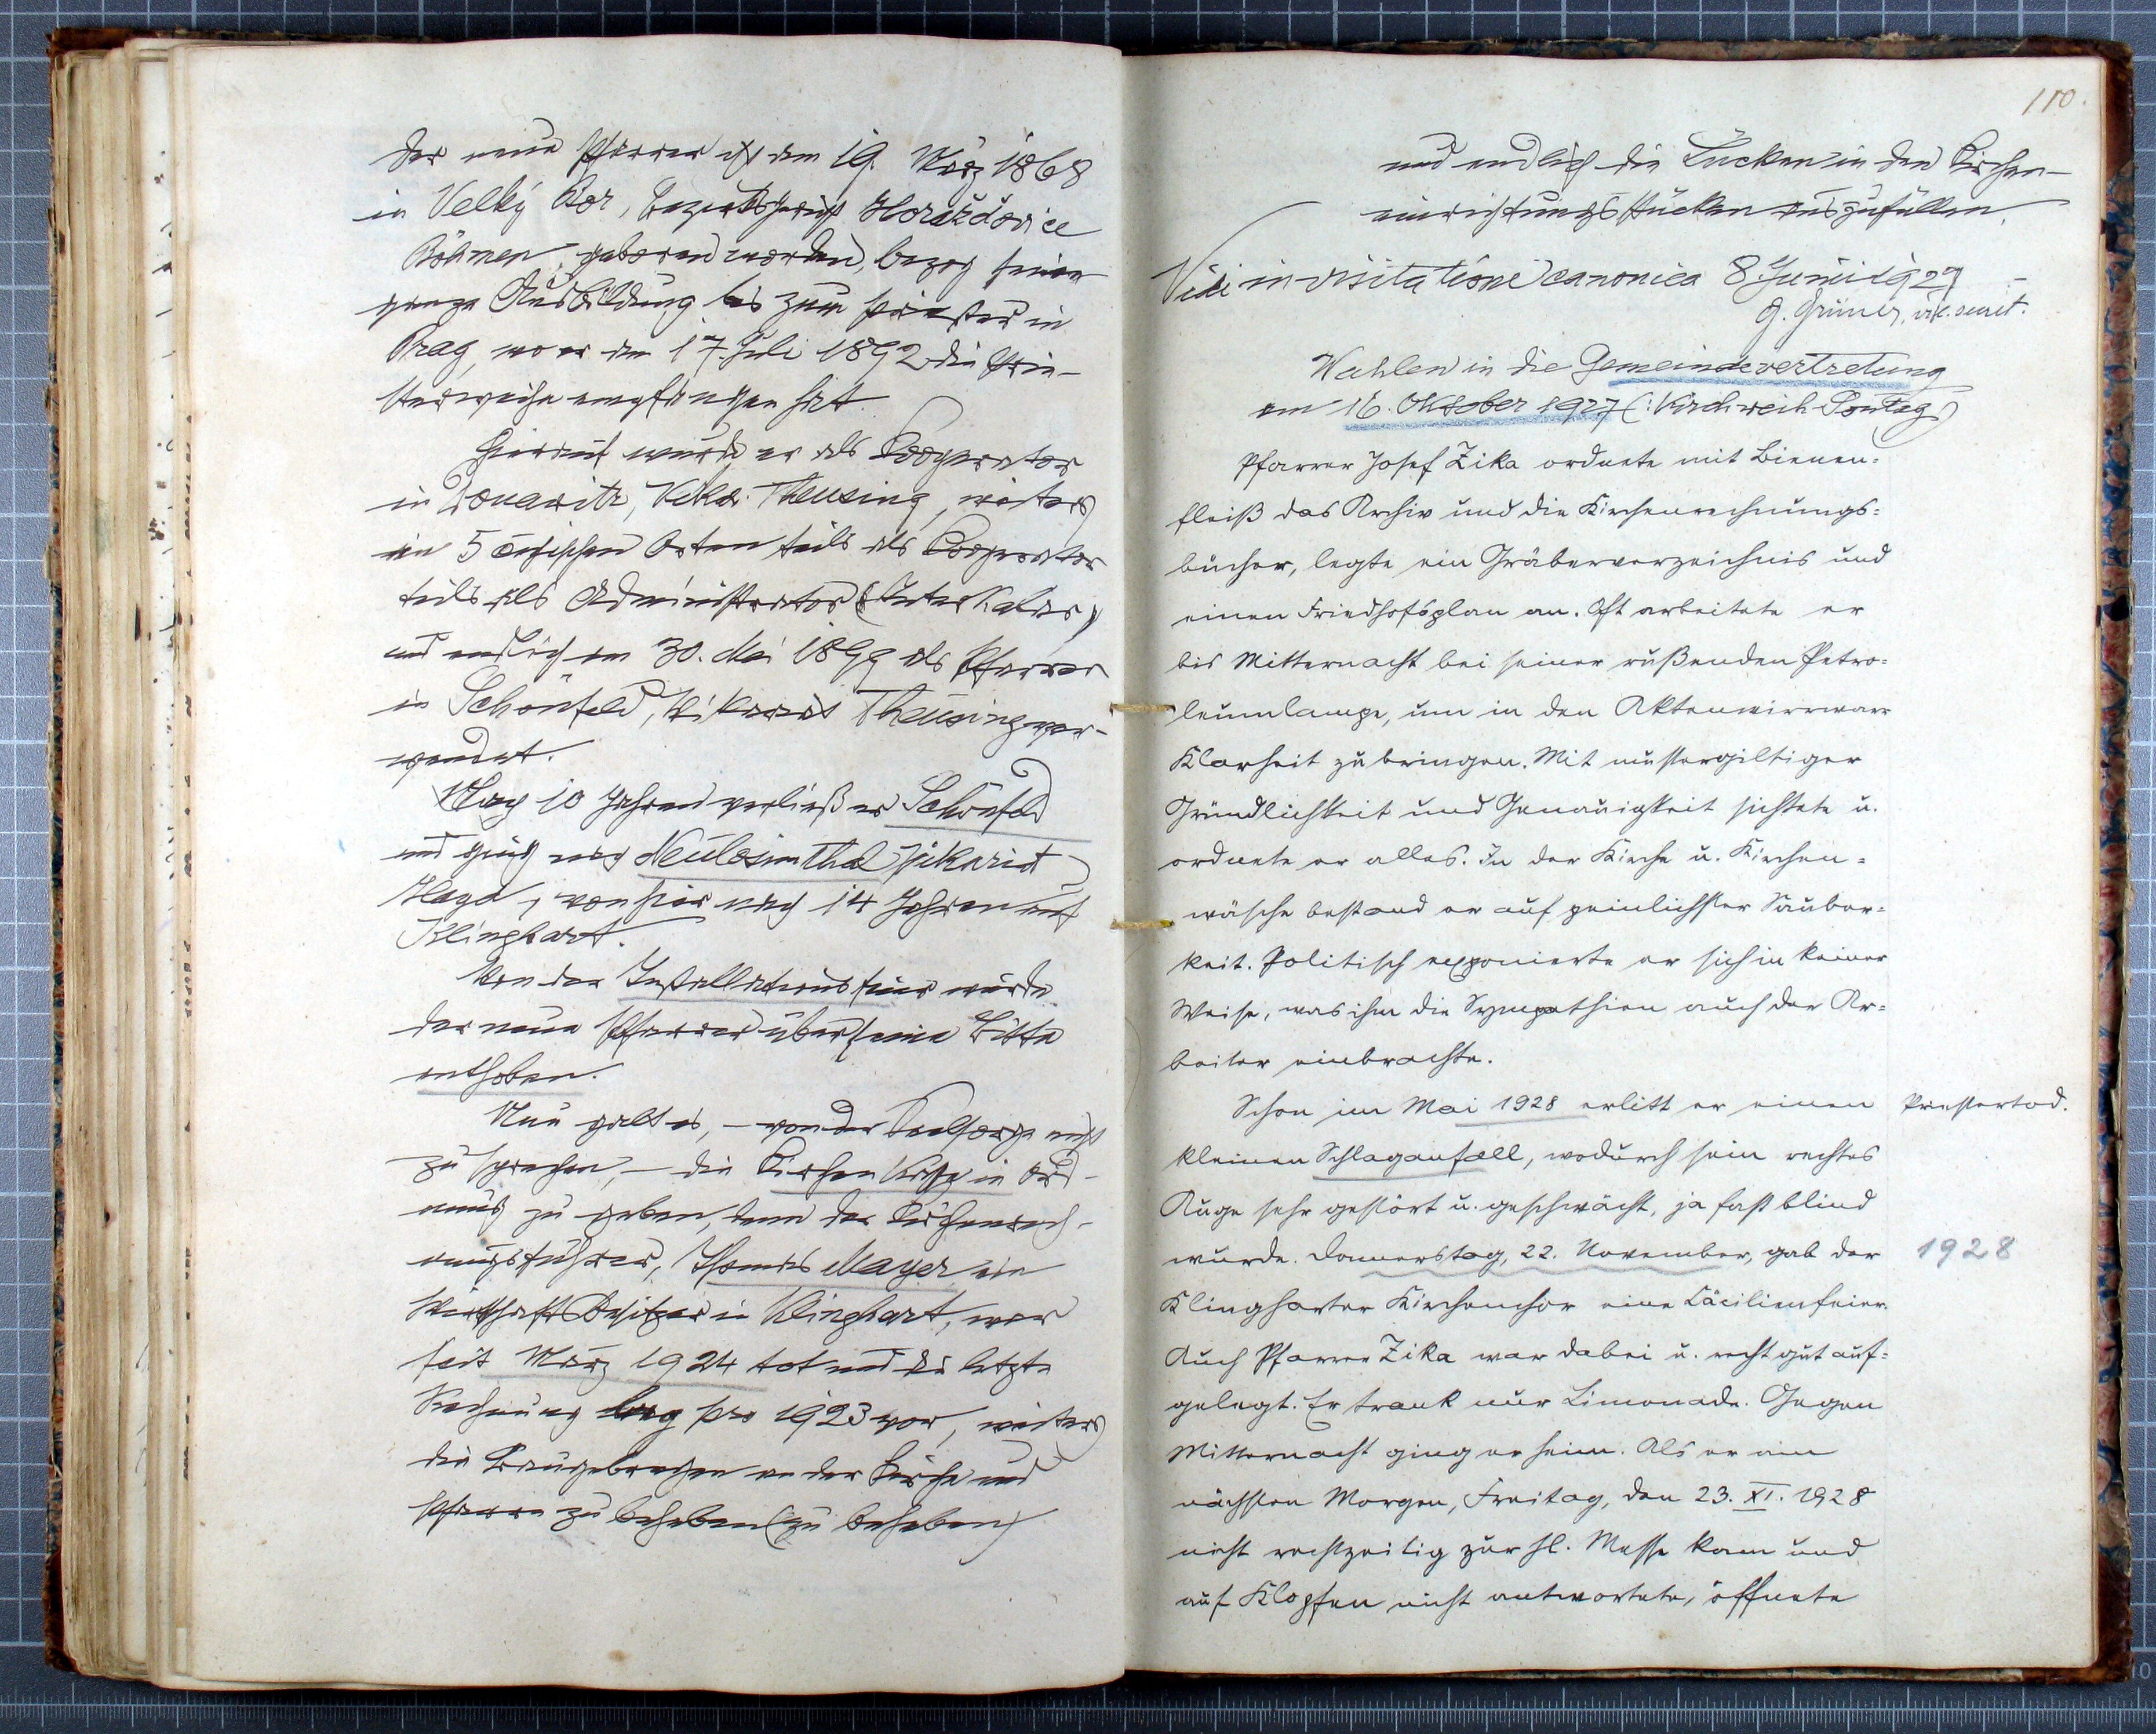 der neue Pfarrer ist am 19. März 1868
in Velký Bor, Bezirksgericht Horažďovice
Böhmen, geboren worden, bezog seine
ganze Ausbildung bis zum Priester in
Prag, wo er am 17. Juli 1892 die Prie-
sterweihe empfangen hat.
Hierauf wurde er als Cooperator
in Donawitz, Vikar. Theusing, weiters
an 5 čechischen Orten teils als Cooperator
teils als Administrator (Interkalar)
und endlich am 30. Mai 1899 als Pfarrer
in Schönfeld, Vikariat Theusing ver-
wendet.
Nach 10 Jahren verließ er Schönfeld
und ging nach Neulosimthal Vikariat
Hayd, von hier nach 14 Jahren auf
Klinghart.
Von der Installationsfeier wurde
der neue Pfarrer über seine Bitte
enthoben.
Nun galt es, – von der Seelsorge nicht
zu sprechen, – die Kirchenkasse in Ord-
nung zu geben, denn der Kirchenrech-
nungsführer, Thomas Mayer ein
Wirtschaftsbesitzer in Klinghart, war
seit März 1924 tot und die letzte
Rechnung lag pro 1923 vor, weiters
die Baugebrechen an der Kirche und
Pfarre zu beheben (zu beheben)
110.
und endlich die Lücken in den Kirchen-
einrichtungsstücken auszufüllen.
Vidi in visitatione canonica 8. Juni 1929
G. Grüner, vik. secret.
Wahlen in die Gemeindevertretung
am 16. Oktober 1927 (: Kirchweih-Sontag)
Pfarrer Josef Zika ordnete mit Bienen=
fleiß das Archiv und die Kirchenrechnungs=
bücher, legte ein Gräberverzeichnis und
einen Friedhofsplan an. Oft arbeitete er
bis Mitternacht bei seiner rußenden Petro=
leumlampe, um in den Aktenwirrwarr
Klarheit zu bringen. Mit mustergiltiger
Gründlichkeit und Genauigkeit sichtete u.
ordnete er alles. In der Kirche u. Kirchen=
wäsche bestand er auf peinlichster Sauber=
keit. Politisch exponierte er sich in keiner
Weise, was ihm die Sympathien auch der Ar=
beiter einbrachte.
Schon im Mai 1928 erlitt er einen Priestertod.
kleinen Schlaganfall, wodurch sein rechtes
Auge sehr gestört u. geschwächt, ja fast blind
wurde. Donnerstag, 22. November, gab der 1928
Klingharter Kirchenchor eine Cäcilienfeier.
Auch Pfarrer Zika war dabei u. recht gut auf=
gelegt. Er trank nur Limonade. Gegen
Mitternacht ging er heim. Als er am
nächsten Morgen, Freitag, den 23. XI. 1928
nicht rechtzeitig zur hl. Messe kam und
auf Klopfen nicht antwortete, öffnete